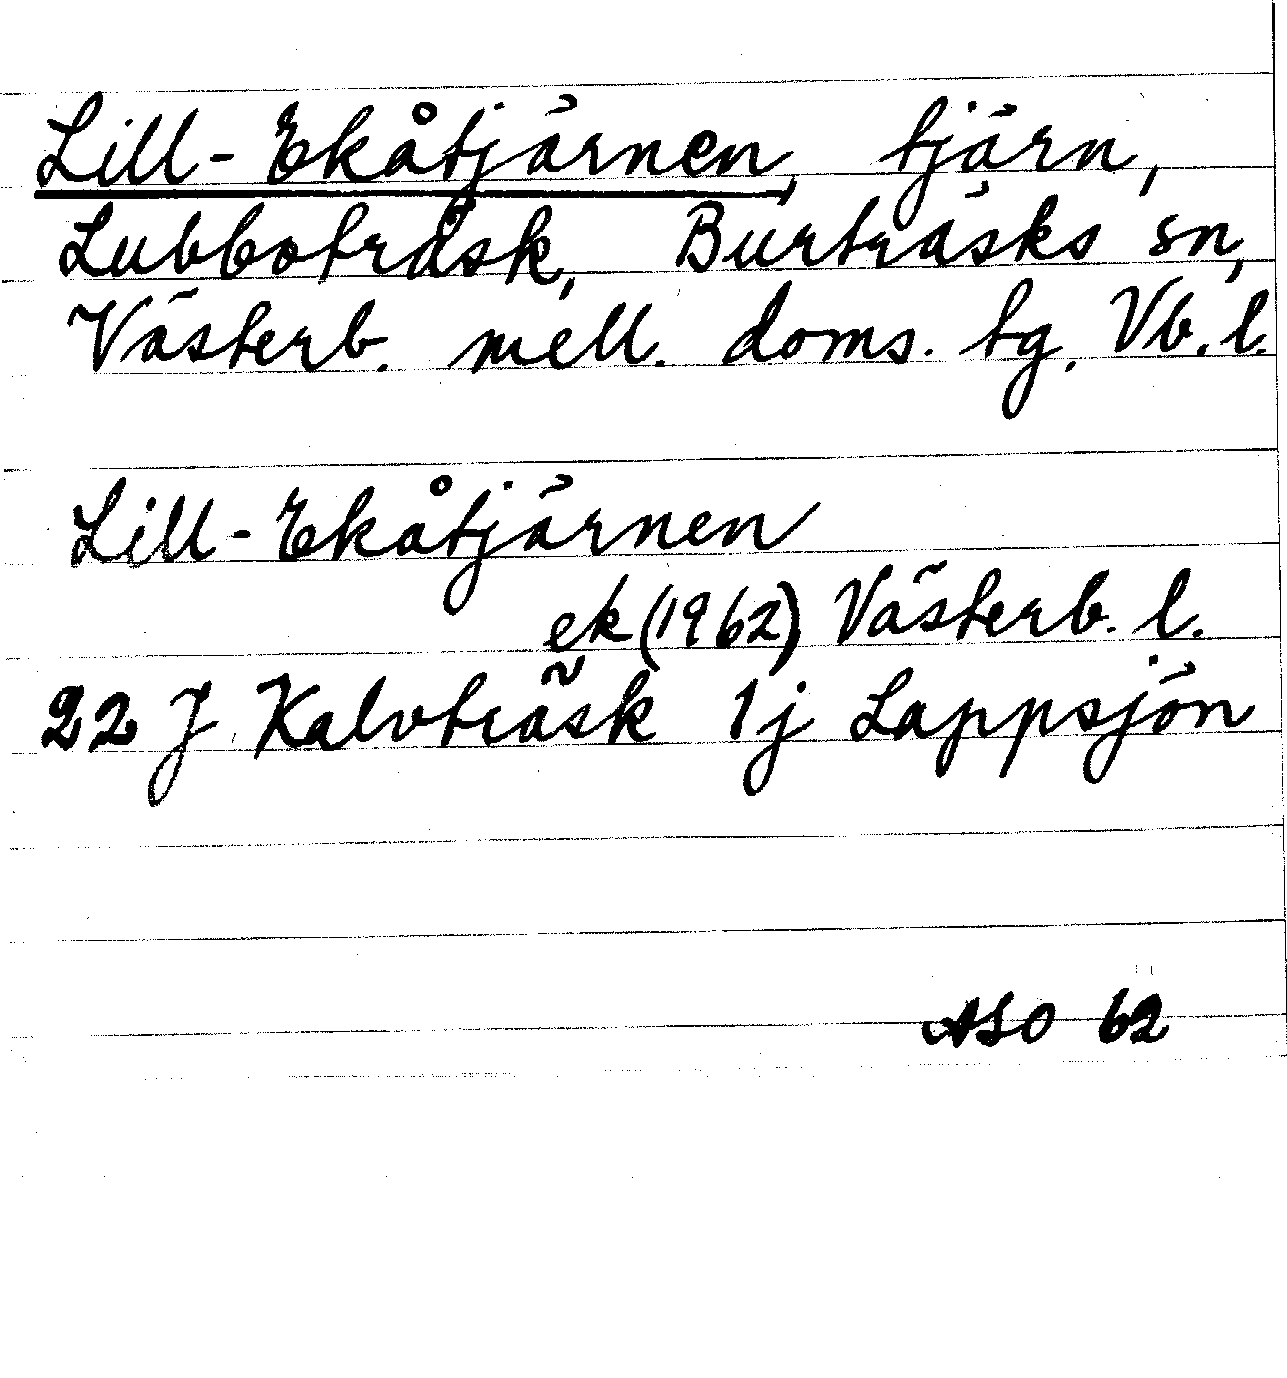 Lill-Ekåtjärnen, tjärn,
Lubboträsk, Burträsks sn,
Västerb. mell. doms. tg. Vb. l.
Lill-Ekåtjärnen
ek (1962) Västerb. l.
22 J Kalvträsk 1j Lappsjön
ASO 62